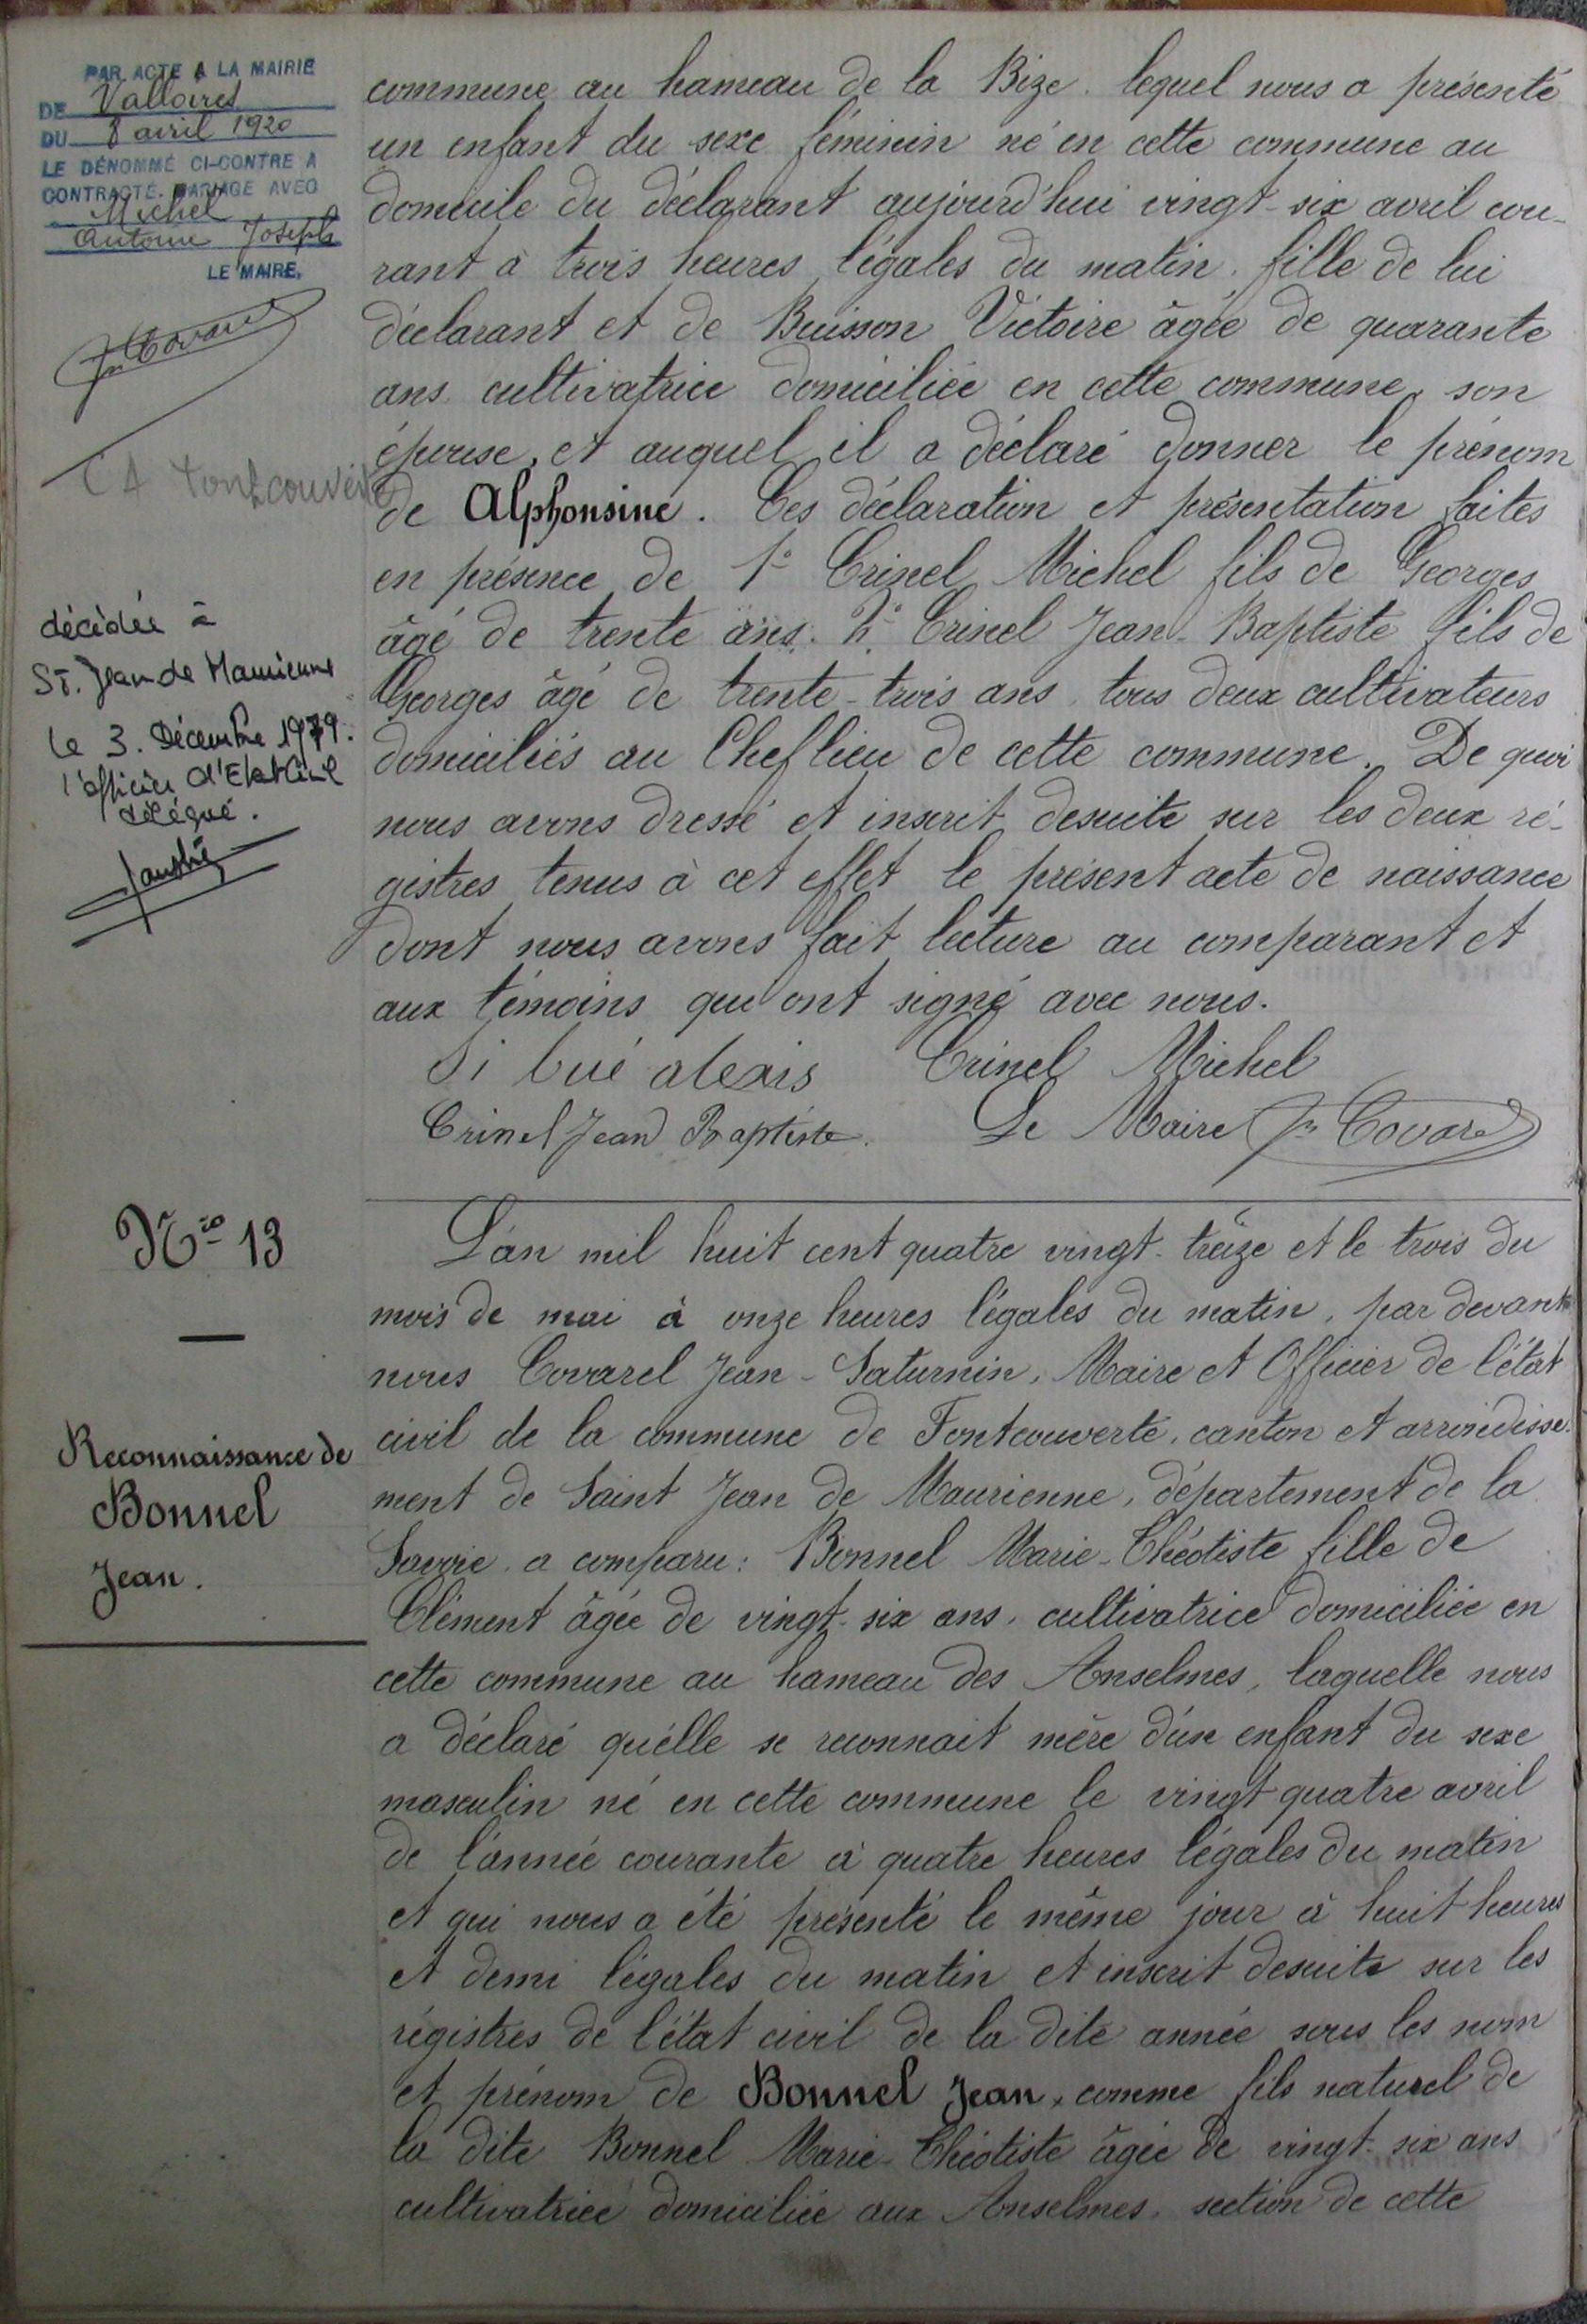 PAR ACTE A LA MAIRIE
DE Valloires
DU 8 avril 1920
LE DÉNOMMÉ CI-CONTRE A
CONTRACTÉ MARIAGE AVEC
Michel
Antoine Joseph
LE MAIRE,
décédée à
St. Jean de Maurienne
le 3. Décembre 1979.
l'officier d'Etat Civil
délégué.
commune au hameau de la Bize. lequel nous a présenté
un enfant du sexe féminin né en cette commune au
domicile du déclarant aujourd'hui vingt-six avril cou-
rant à trois heures légales du matin. fille de lui
déclarant et de Buisson Victoire âgée de quarante
ans cultivatrice domiciliée en cette commune, son
épouse, et auquel il a déclaré donner le prénom
de Alphonsine. Ces déclaration et présentation faites
en présence de 1° Crinel Michel fils de Georges
âgé de trente ans. 2° Crinel Jean-Baptiste fils de
Georges âgé de trente-trois ans, tous deux cultivateurs
domiciliés au Cheflieu de cette commune. De quoi
nous avons dressé et inscrit desuite sur les deux ré-
gistres tenus à cet effet le présent acte de naissance
dont nous avons fait lecture au comparant et
aux témoins qui ont signé avec nous.
Si bué alexis Crinel Michel
Crinel Jean Baptiste. Le Maire Jn Covarel
Nro 13
Reconnaissance de
Bonnel
Jean.
L'an mil huit cent quatre vingt-treize et le trois du
mois de mai à onze heures légales du matin, par devant
nous Covarel Jean-Saturnin, Maire et Officier de l'état
civil de la commune de Fontcouverte, canton et arrondisse-
ment de Saint Jean de Maurienne, département de la
Savoie, a comparu: Bonnel Marie-Théotiste fille de
Clément âgée de vingt-six ans, cultivatrice domiciliée en
cette commune au hameau des Anselmes, laquelle nous
a déclaré qu'elle se reconnait mère d'un enfant du sexe
masculin né en cette commune le vingt quatre avril
de l'année courante à quatre heures légales du matin
et qui nous a été présenté le même jour à huit heures
et demi légales du matin et inscrit desuite sur les
régistres de l'état civil de la dite année sous les nom
et prénom de Bonnel Jean, comme fils naturel de
la dite Bonnel Marie-Théotiste âgée de vingt-six ans
cultivatrice domiciliée aux Anselmes, section de cette